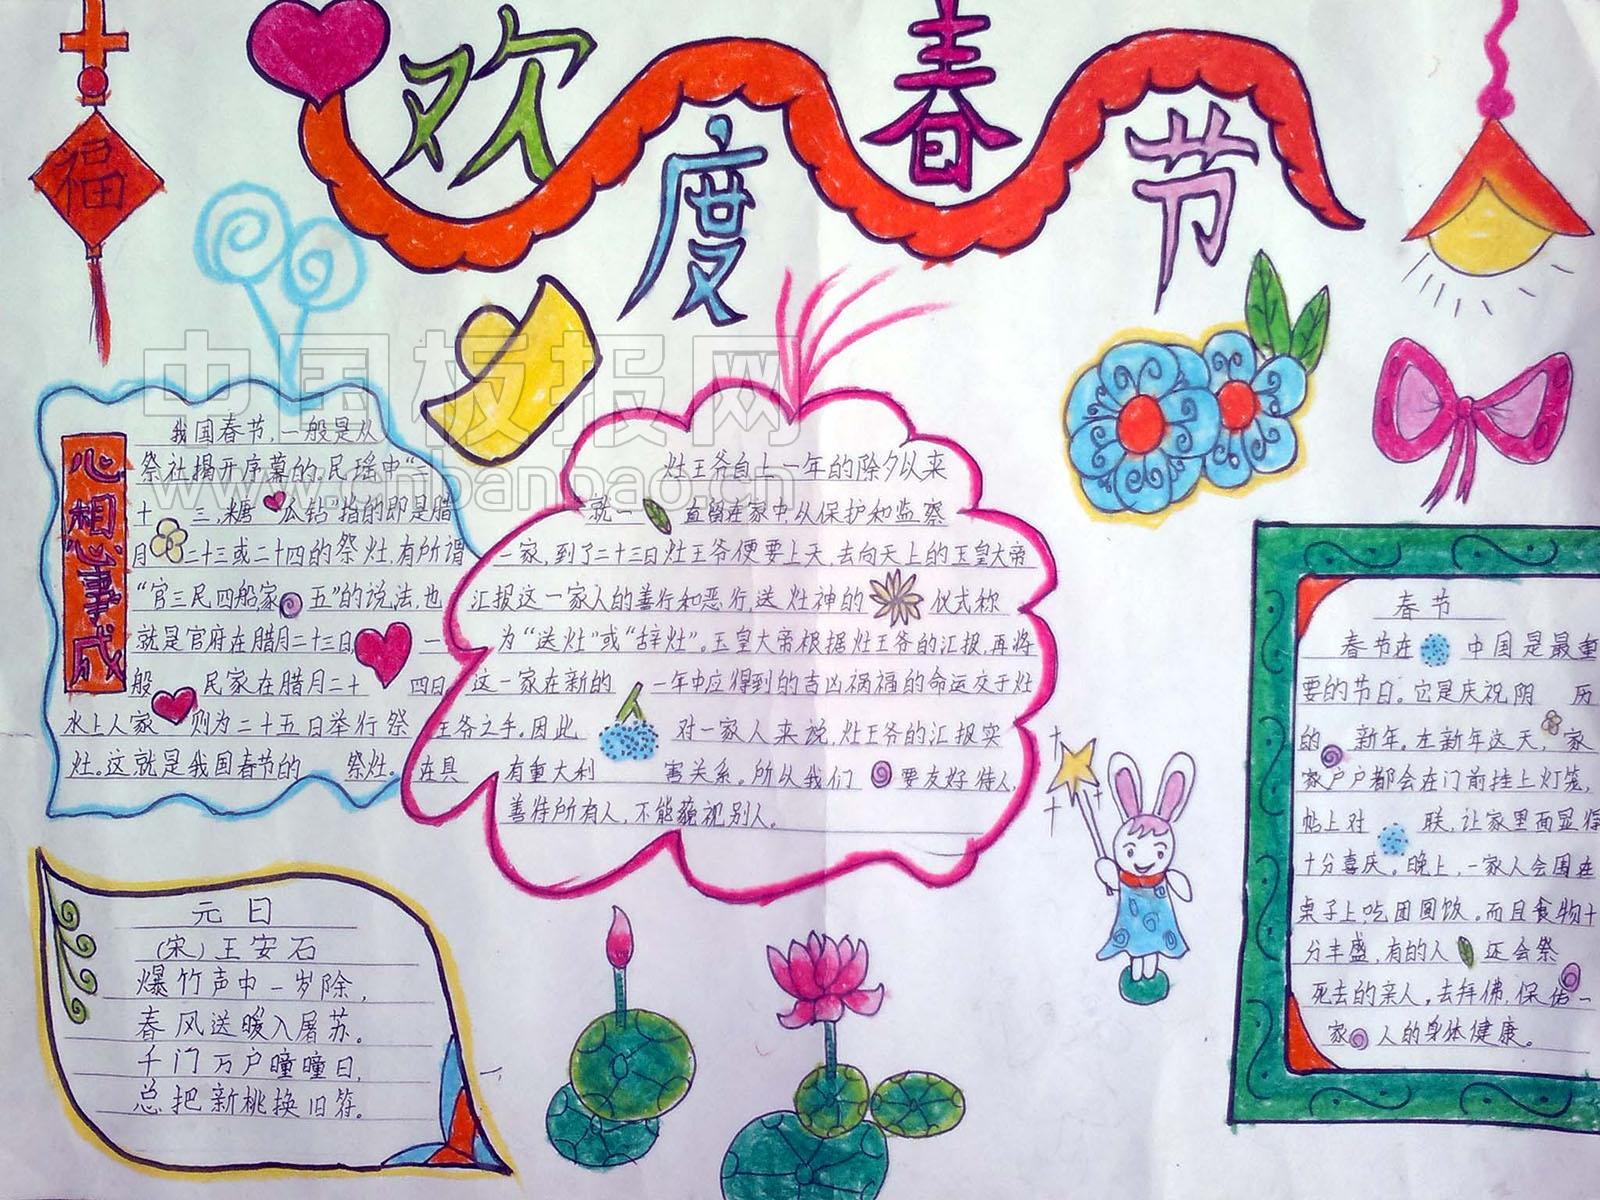 欢度春节
福
中国板报网
www.cnbanbao.cn
心想事成
我国春节,一般是从
祭社揭开序幕的。民瑶中“二
十三,糖瓜钻”指的即是腊
月二十三或二十四的祭灶,有所谓
“官三民四船家五”的说法,也
就是官府在腊月二十三日,一
般民家在腊月二十四日,
水上人家则为二十五日举行祭
灶。这就是我国春节的祭灶。在具
灶王爷自上一年的除夕以来
就一直留在家中,从保护和监察
一家,到了二十三日灶王爷便要上天,去向天上的玉皇大帝
汇报这一家人的善行和恶行,送灶神的仪式称
为“送灶”或“辞灶”。玉皇大帝根据灶王爷的汇报,再将
这一家在新的一年中应得到的吉凶祸福的命运交于灶
王爷之手。因此,对一家人来说,灶王爷的汇报实
有重大利害关系。所以我们要友好待人,
善待所有人,不能藐视别人。
春节
春节在中国是最重
要的节日。它是庆祝阴历
的新年。在新年这天,家
家户户都会在门前挂上灯笼,
帖上对联,让家里面显得
十分喜庆。晚上,一家人会围在
桌子上吃团圆饭。而且食物十
分丰盛,有的人还会祭
死去的亲人。去拜佛,保佑一
家人的身体健康。
元日
(宋)王安石
爆竹声中一岁除,
春风送暖入屠苏。
千门万户曈曈日,
总把新桃换旧符。